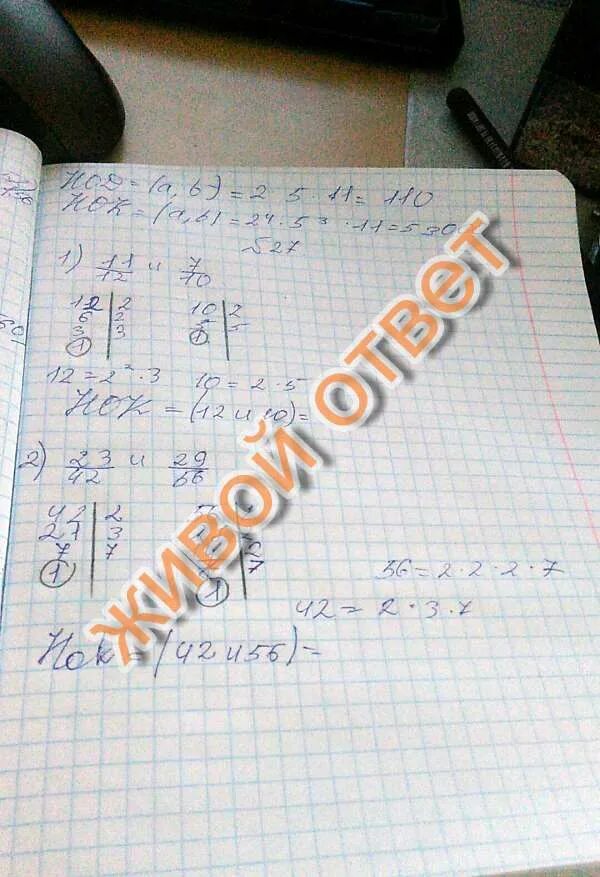 НОД = (а, b) = 2 5 · 11 = 110
НОК = (а, b) = 24 · 5³ · 11 =
№27
1) 11/12 и 7/10
12 | 2 10 | 2
6 | 2 5 | 5
3 | 3 1
1
12 = 2² · 3 10 = 2 · 5
НОК = (12 и 10) =
2) 23/42 и 29/56
42 | 2
21 | 3
7 | 7 7
1 1
56 = 2 · 2 · 2 · 7
42 = 2 · 3 · 7
НОК = (42 и 56) =
ЖИВОЙ ОТВЕТ